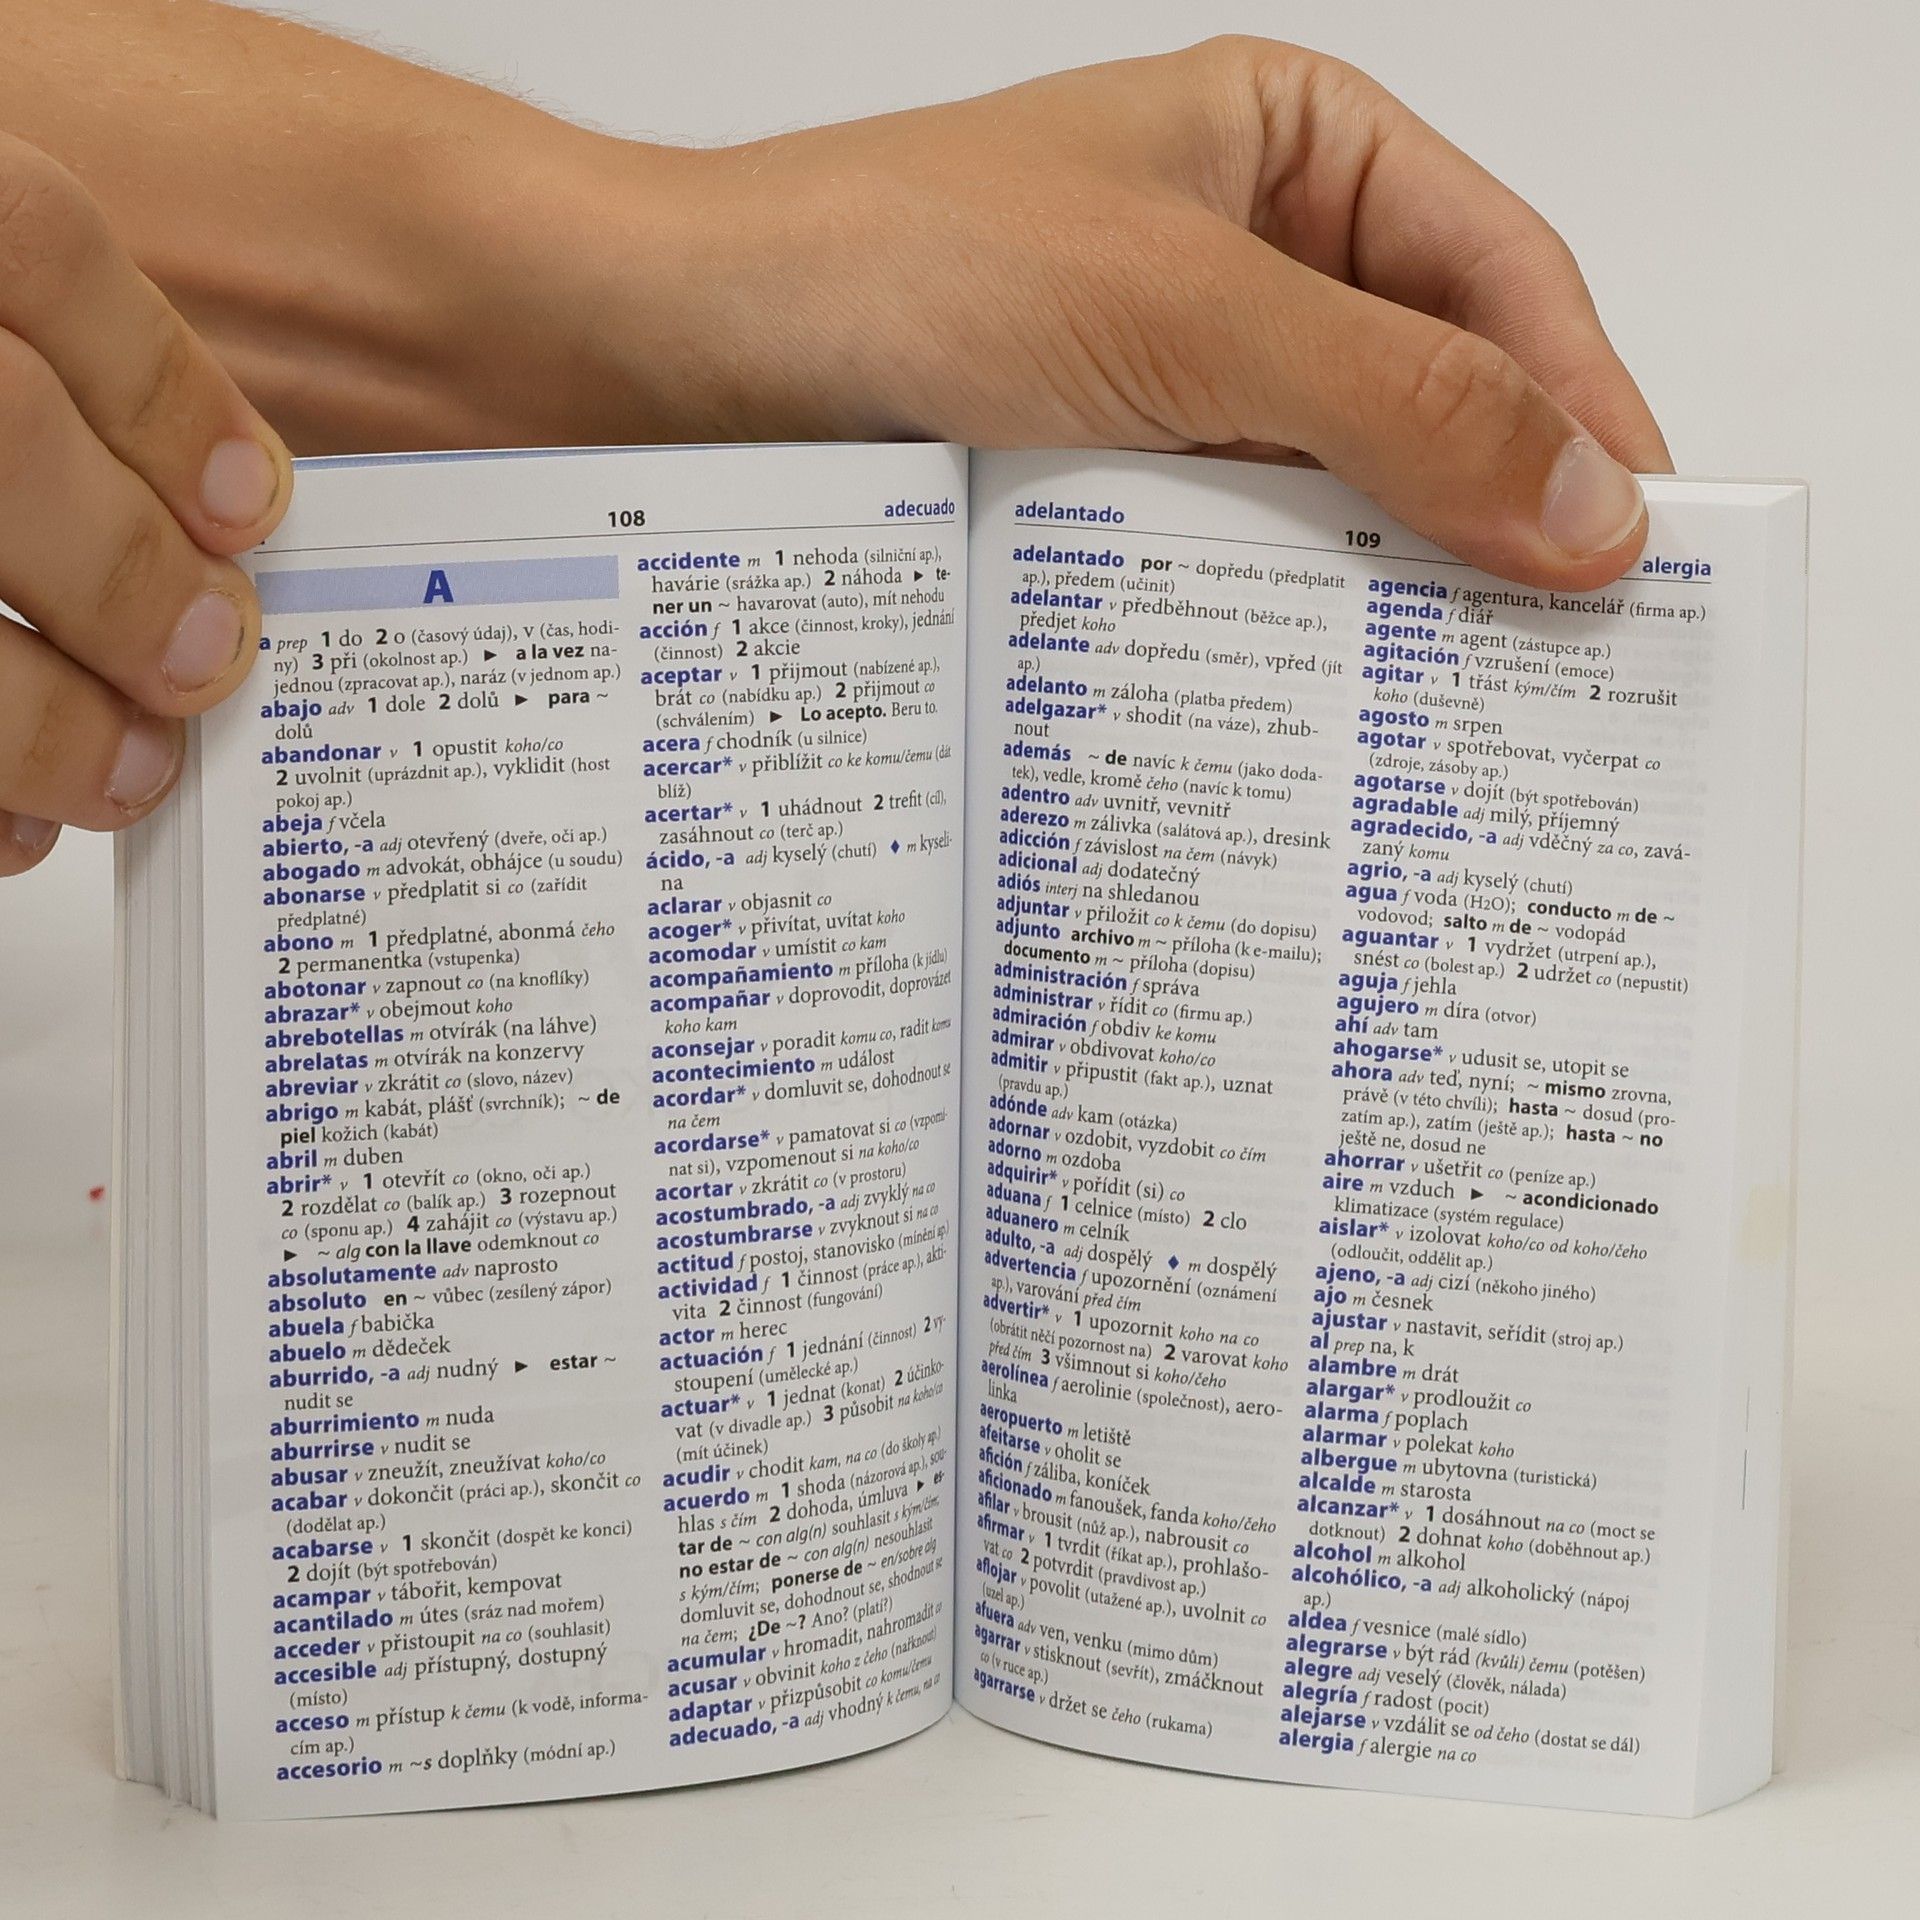 108
adecuado
A
a prep 1 do 2 o (časový údaj), v (čas, hodi-
ny) 3 při (okolnost ap.) ► a la vez na-
jednou (zpracovat ap.), naráz (v jednom ap.)
abajo adv 1 dole 2 dolů ► para ~
dolů
abandonar v 1 opustit koho/co
2 uvolnit (uprázdnit ap.), vyklidit (host
pokoj ap.)
abeja f včela
abierto, -a adj otevřený (dveře, oči ap.)
abogado m advokát, obhájce (u soudu)
abonarse v předplatit si co (zařídit
předplatné)
abono m 1 předplatné, abonmá čeho
2 permanentka (vstupenka)
abotonar v zapnout co (na knoflíky)
abrazar* v obejmout koho
abrebotellas m otvírák (na láhve)
abrelatas m otvírák na konzervy
abreviar v zkrátit co (slovo, název)
abrigo m kabát, plášť (svrchník); ~ de
piel kožich (kabát)
abril m duben
abrir* v 1 otevřít co (okno, oči ap.)
2 rozdělat co (balík ap.) 3 rozepnout
co (sponu ap.) 4 zahájit co (výstavu ap.)
► ~ alg con la llave odemknout co
absolutamente adv naprosto
absoluto en ~ vůbec (zesílený zápor)
abuela f babička
abuelo m dědeček
aburrido, -a adj nudný ► estar ~
nudit se
aburrimiento m nuda
aburrirse v nudit se
abusar v zneužít, zneužívat koho/co
acabar v dokončit (práci ap.), skončit co
(dodělat ap.)
acabarse v 1 skončit (dospět ke konci)
2 dojít (být spotřebován)
acampar v tábořit, kempovat
acantilado m útes (sráz nad mořem)
acceder v přistoupit na co (souhlasit)
accesible adj přístupný, dostupný
(místo)
acceso m přístup k čemu (k vodě, informa-
cím ap.)
accesorio m ~s doplňky (módní ap.)
accidente m 1 nehoda (silniční ap.),
havárie (srážka ap.) 2 náhoda ► te-
ner un ~ havarovat (auto), mít nehodu
acción f 1 akce (činnost, kroky), jednání
(činnost) 2 akcie
aceptar v 1 přijmout (nabízené ap.),
brát co (nabídku ap.) 2 přijmout co
(schválením) ► Lo acepto. Beru to.
acera f chodník (u silnice)
acercar* v přiblížit co ke komu/čemu (dát
blíž)
acertar* v 1 uhádnout 2 trefit (cíl),
zasáhnout co (terč ap.)
ácido, -a adj kyselý (chutí) ♦ m kyseli-
na
aclarar v objasnit co
acoger* v přivítat, uvítat koho
acomodar v umístit co kam
acompañamiento m příloha (k jídlu)
acompañar v doprovodit, doprovázet
koho kam
aconsejar v poradit komu co, radit komu
acontecimiento m událost
acordar* v domluvit se, dohodnout se
na čem
acordarse* v pamatovat si co (vzpomí-
nat si), vzpomenout si na koho/co
acortar v zkrátit co (v prostoru)
acostumbrado, -a adj zvyklý na co
acostumbrarse v zvyknout si na co
actitud f postoj, stanovisko (mínění ap.)
actividad f 1 činnost (práce ap.), akti-
vita 2 činnost (fungování)
actor m herec
actuación f 1 jednání (činnost) 2 vy-
stoupení (umělecké ap.)
actuar* v 1 jednat (konat) 2 účinko-
vat (v divadle ap.) 3 působit na koho/co
(mít účinek)
acudir v chodit kam, na co (do školy ap.)
acuerdo m 1 shoda (názorová ap.), sou-
hlas s čím 2 dohoda, úmluva ► es-
tar de ~ con alg(n) souhlasit s kým/čím,
no estar de ~ con alg(n) nesouhlasit
s kým/čím; ponerse de ~ en/sobre alg
domluvit se, dohodnout se, shodnout se
na čem; ¿De ~? Ano? (platí?)
acumular v hromadit, nahromadit co
acusar v obvinit koho z čeho (nařknout)
adaptar v přizpůsobit co komu/čemu
adecuado, -a adj vhodný k čemu, na co
adelantado
109
alergia
adelantado por ~ dopředu (předplatit
ap.), předem (učinit)
adelantar v předběhnout (běžce ap.),
předjet koho
adelante adv dopředu (směr), vpřed (jít
ap.)
adelanto m záloha (platba předem)
adelgazar* v shodit (na váze), zhub-
nout
además ~ de navíc k čemu (jako doda-
tek), vedle, kromě čeho (navíc k tomu)
adentro adv uvnitř, vevnitř
aderezo m zálivka (salátová ap.), dresink
adicción f závislost na čem (návyk)
adicional adj dodatečný
adiós interj na shledanou
adjuntar v přiložit co k čemu (do dopisu)
adjunto archivo m ~ příloha (k e-mailu);
documento m ~ příloha (dopisu)
administración f správa
administrar v řídit co (firmu ap.)
admiración f obdiv ke komu
admirar v obdivovat koho/co
admitir v připustit (fakt ap.), uznat
(pravdu ap.)
adónde adv kam (otázka)
adornar v ozdobit, vyzdobit co čím
adorno m ozdoba
adquirir* v pořídit (si) co
aduana f 1 celnice (místo) 2 clo
aduanero m celník
adulto, -a adj dospělý ♦ m dospělý
advertencia f upozornění (oznámení
ap.), varování před čím
advertir* v 1 upozornit koho na co
(obrátit něčí pozornost na) 2 varovat koho
před čím 3 všimnout si koho/čeho
aerolínea f aerolinie (společnost), aero-
linka
aeropuerto m letiště
afeitarse v oholit se
afición f záliba, koníček
aficionado m fanoušek, fanda koho/čeho
afilar v brousit (nůž ap.), nabrousit co
afirmar v 1 tvrdit (říkat ap.), prohlašo-
vat co 2 potvrdit (pravdivost ap.)
aflojar v povolit (utažené ap.), uvolnit co
(uzel ap.)
afuera adv ven, venku (mimo dům)
agarrar v stisknout (sevřít), zmáčknout
co (v ruce ap.)
agarrarse v držet se čeho (rukama)
agencia f agentura, kancelář (firma ap.)
agenda f diář
agente m agent (zástupce ap.)
agitación f vzrušení (emoce)
agitar v 1 třást kým/čím 2 rozrušit
koho (duševně)
agosto m srpen
agotar v spotřebovat, vyčerpat co
(zdroje, zásoby ap.)
agotarse v dojít (být spotřebován)
agradable adj milý, příjemný
agradecido, -a adj vděčný za co, zavá-
zaný komu
agrio, -a adj kyselý (chutí)
agua f voda (H2O); conducto m de ~
vodovod; salto m de ~ vodopád
aguantar v 1 vydržet (utrpení ap.),
snést co (bolest ap.) 2 udržet co (nepustit)
aguja f jehla
agujero m díra (otvor)
ahí adv tam
ahogarse* v udusit se, utopit se
ahora adv teď, nyní; ~ mismo zrovna,
právě (v této chvíli); hasta ~ dosud (pro-
zatím ap.), zatím (ještě ap.); hasta ~ no
ještě ne, dosud ne
ahorrar v ušetřit co (peníze ap.)
aire m vzduch ► ~ acondicionado
klimatizace (systém regulace)
aislar* v izolovat koho/co od koho/čeho
(odloučit, oddělit ap.)
ajeno, -a adj cizí (někoho jiného)
ajo m česnek
ajustar v nastavit, seřídit (stroj ap.)
al prep na, k
alambre m drát
alargar* v prodloužit co
alarma f poplach
alarmar v polekat koho
albergue m ubytovna (turistická)
alcalde m starosta
alcanzar* v 1 dosáhnout na co (moct se
dotknout) 2 dohnat koho (doběhnout ap.)
alcohol m alkohol
alcohólico, -a adj alkoholický (nápoj
ap.)
aldea f vesnice (malé sídlo)
alegrarse v být rád (kvůli) čemu (potěšen)
alegre adj veselý (člověk, nálada)
alegría f radost (pocit)
alejarse v vzdálit se od čeho (dostat se dál)
alergia f alergie na co